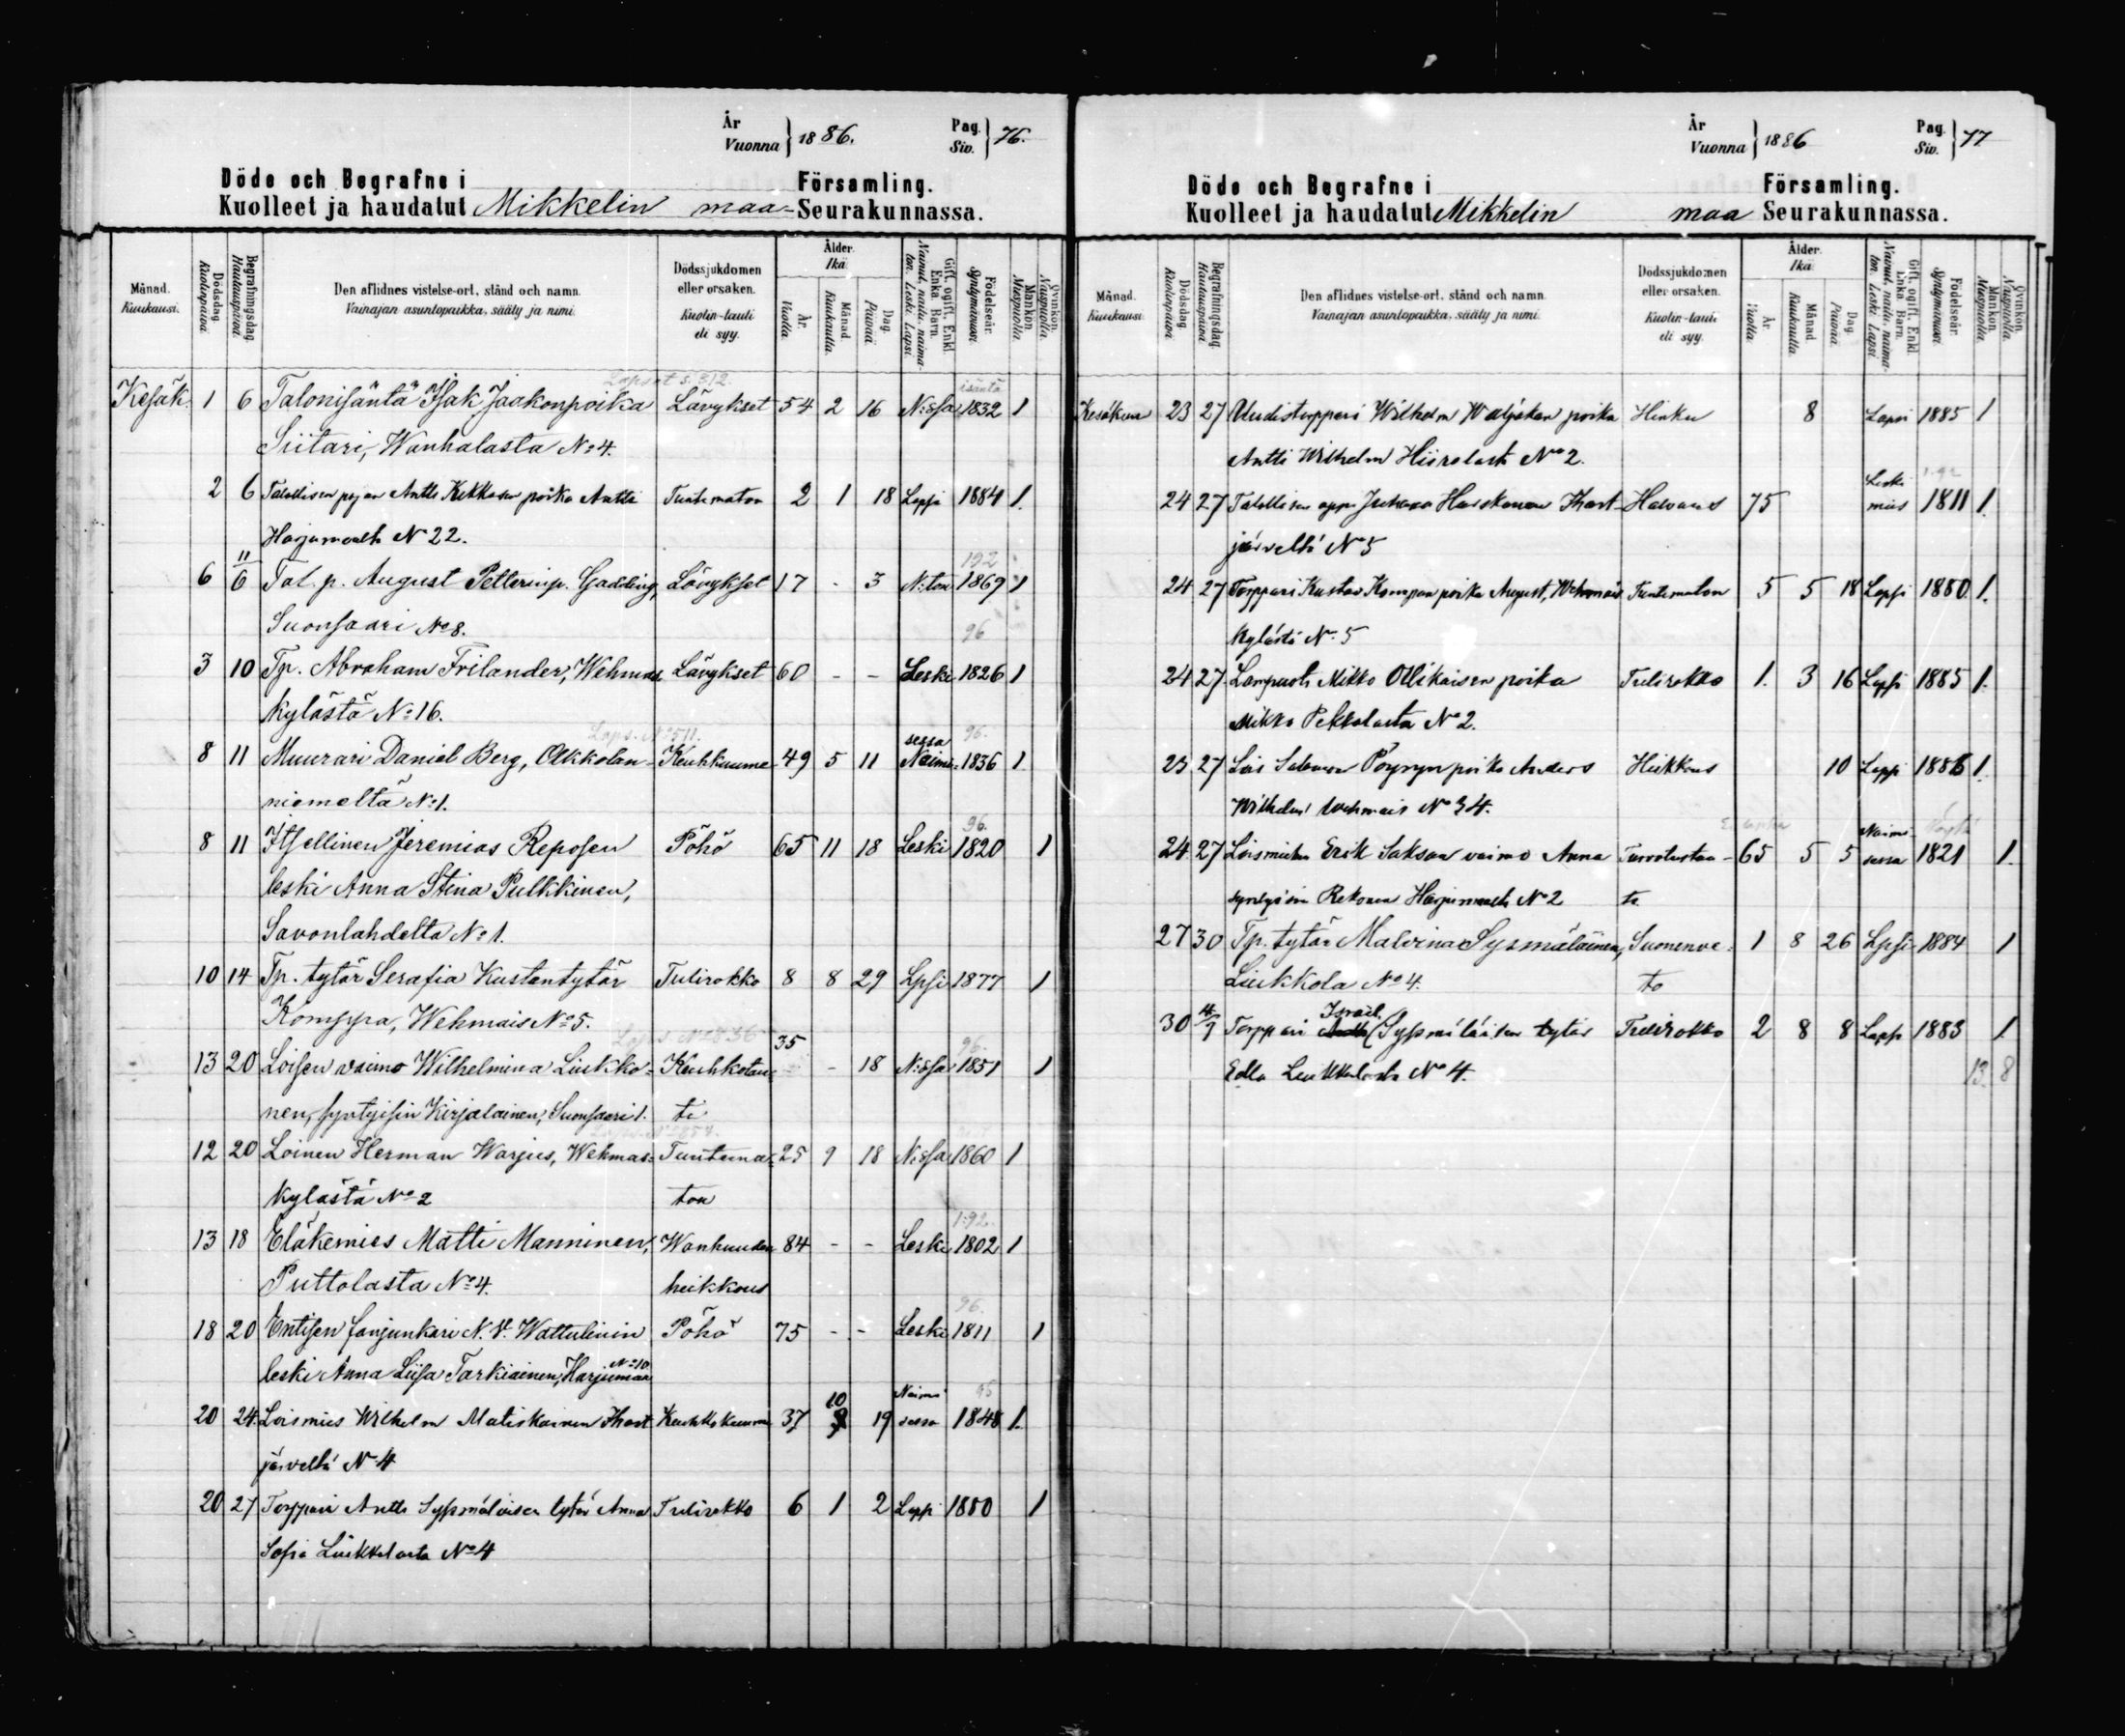 År
Vuonna } 1886.
Pag.
Siv. } 76.
Döde och Begrafne i Församling.
Kuolleet ja haudatut Mikkelin maa-Seurakunnassa.
Månad. Kuukausi.
Dödsdag. Kuolinpäivä.
Begrafningsdag. Hautauspäivä.
Den aflidnes vistelse-ort, stånd och namn.
Vainajan asuntopaikka, sääty ja nimi.
Dödssjukdomen eller orsaken.
Kuolin-tauti eli syy.
Ålder. Ikä.
År. Vuotta.
Månad. Kuukautta.
Dag. Päivää.
Gift, ogift, Enkl. Enka. Barn.
Nainut, naitu, naima-ton. Leski. Lapsi.
Födelseår. Syntymävuosi.
Mankön. Miespuolia.
Qvinkön. Naispuolia.
Lapset s. 312. isäntä
Kesäk. 1 6 Talonisäntä Isak Jaakonpoika Lävykset 54 2 16 N:ssa 1832 1
Siitari, Wanhalasta No 4.
2 6 Talollisen pojan Antti Kekkosen poika Antti Tuntematon 2 1 18 Lapsi 1884 1.
Harjumaalta N 22.
6 11/6 Tal. p. August Petterinp. Gadding, Lävykset 17 - 3 N:ton 1869 1
192
Suonsaari No 8.
96
3 10 Tp. Abraham Frilander, Wehmas Lävykset 60 - - Leski 1826 1
kylästä No 16.
Laps. No 511. 96.
8 11 Muurari Daniel Berg, Olkkolan- Keuhkuume 49 5 11 Naimisessa 1836 1.
niemeltä No 1.
96.
8 11 Itsellinen Jeremias Reposen Pöhö 65 11 18 Leski 1820 1
leski Anna Stina Pulkkinen,
Savonlahdelta No 1.
10 14 Tp. tytär Serafia Kustantytär Tulirokko 8 8 29 Lpsi 1877 1
Komppa, Wehmais No 5.
96.
13 20 Loisen vaimo Wilhelmina Liukko- Keuhkotau- 35 - 18 N:ssa 1851 1
nen, syntyisin Kirjalainen, Suonsaari 1. ti
12 20 Loinen Herman Warjus, Wehmas- Tuntema- 25 9 18 N:ssa 1860 1
kylästä No 2 ton
1:92.
13 18 Eläkemies Matti Manninen, Wanhuuden 84 - - Leski 1802 1
Puttolasta No 4. heikkous
96.
18 20 Entisen fanjunkari N. V. Wattulinin Pöhö 75 - - Leski 1811 1
leski Anna Liisa Tarkiainen, Harjumaa No 10
20 24. Loismies Wilhelm Matiskainen Ihast- Keuhkokuume 37 10 19 Naimisessa 1848 1.
järveltä N 4
20 27 Torppari Antti Syssmäläisen tytär Anna Tulirokko 6 1 2 Lapsi 1880 1
Sofia Liukkolasta No 4
År
Vuonna } 1886
Pag.
Siv. } 77
Döde och Begrafne i Församling.
Kuolleet ja haudatut Mikkelin maa Seurakunnassa.
Månad. Kuukausi.
Dödsdag. Kuolinpäivä.
Begrafningsdag. Hautauspäivä.
Den aflidnes vistelse-ort, stånd och namn.
Vainajan asuntopaikka, sääty ja nimi.
Dödssjukdomen eller orsaken.
Kuolin-tauti eli syy.
Ålder. Ikä.
År. Vuotta.
Månad. Kuukautta.
Dag. Päivää.
Gift, ogift, Enkl. Enka. Barn.
Nainut, naitu, naima-ton. Leski. Lapsi.
Födelseår. Syntymävuosi.
Mankön. Miespuolia.
Qvinkön. Naispuolia.
Kesäkuu 23 27 Uudistorppari Wilhelm Waljakan poika Hinku 8 Lapsi 1885 1
Antti Wilhelm Hiirolasta No 2.
24 27 Talollisen appi Juhana Haiskanen Ihast- Halvaus 75 Leski mies 1811 1.
järveltä No 5
24 27 Torppari Kustav Kompan poika August, Wehmais Tuntematon 5 5 18 Lapsi 1880 1.
kylästä N. 5
24 27 Lampuoti Mikko Ollikaisen poika Tulirokko 1. 3 16 Lapsi 1885 1.
Mikko Pekkolasta No 2.
23 27 Lois Salomon Pöyryn poika Anders Heikkous 10 Lapsi 1886 1.
Wilhelm Wehmais No 34.
24 27 Loismiehen Erik Saksan vaimo Anna Turvotustau- 65 5 5 Naimisessa 1821 1.
syntyisin Rekonen Harjumaalta No 2 ti
27 30 Tp. tytär Malvina Sysmäläinen, Suonenve- 1 8 26 Lpsi 1884 1
Liukkola No 4. to
30 4/7 Torppari Israel Syssmäläisen tytär Tulirokko 2 8 8 Lapsi 1883 1.
Edla Liukkolasta No 4.
13. 8